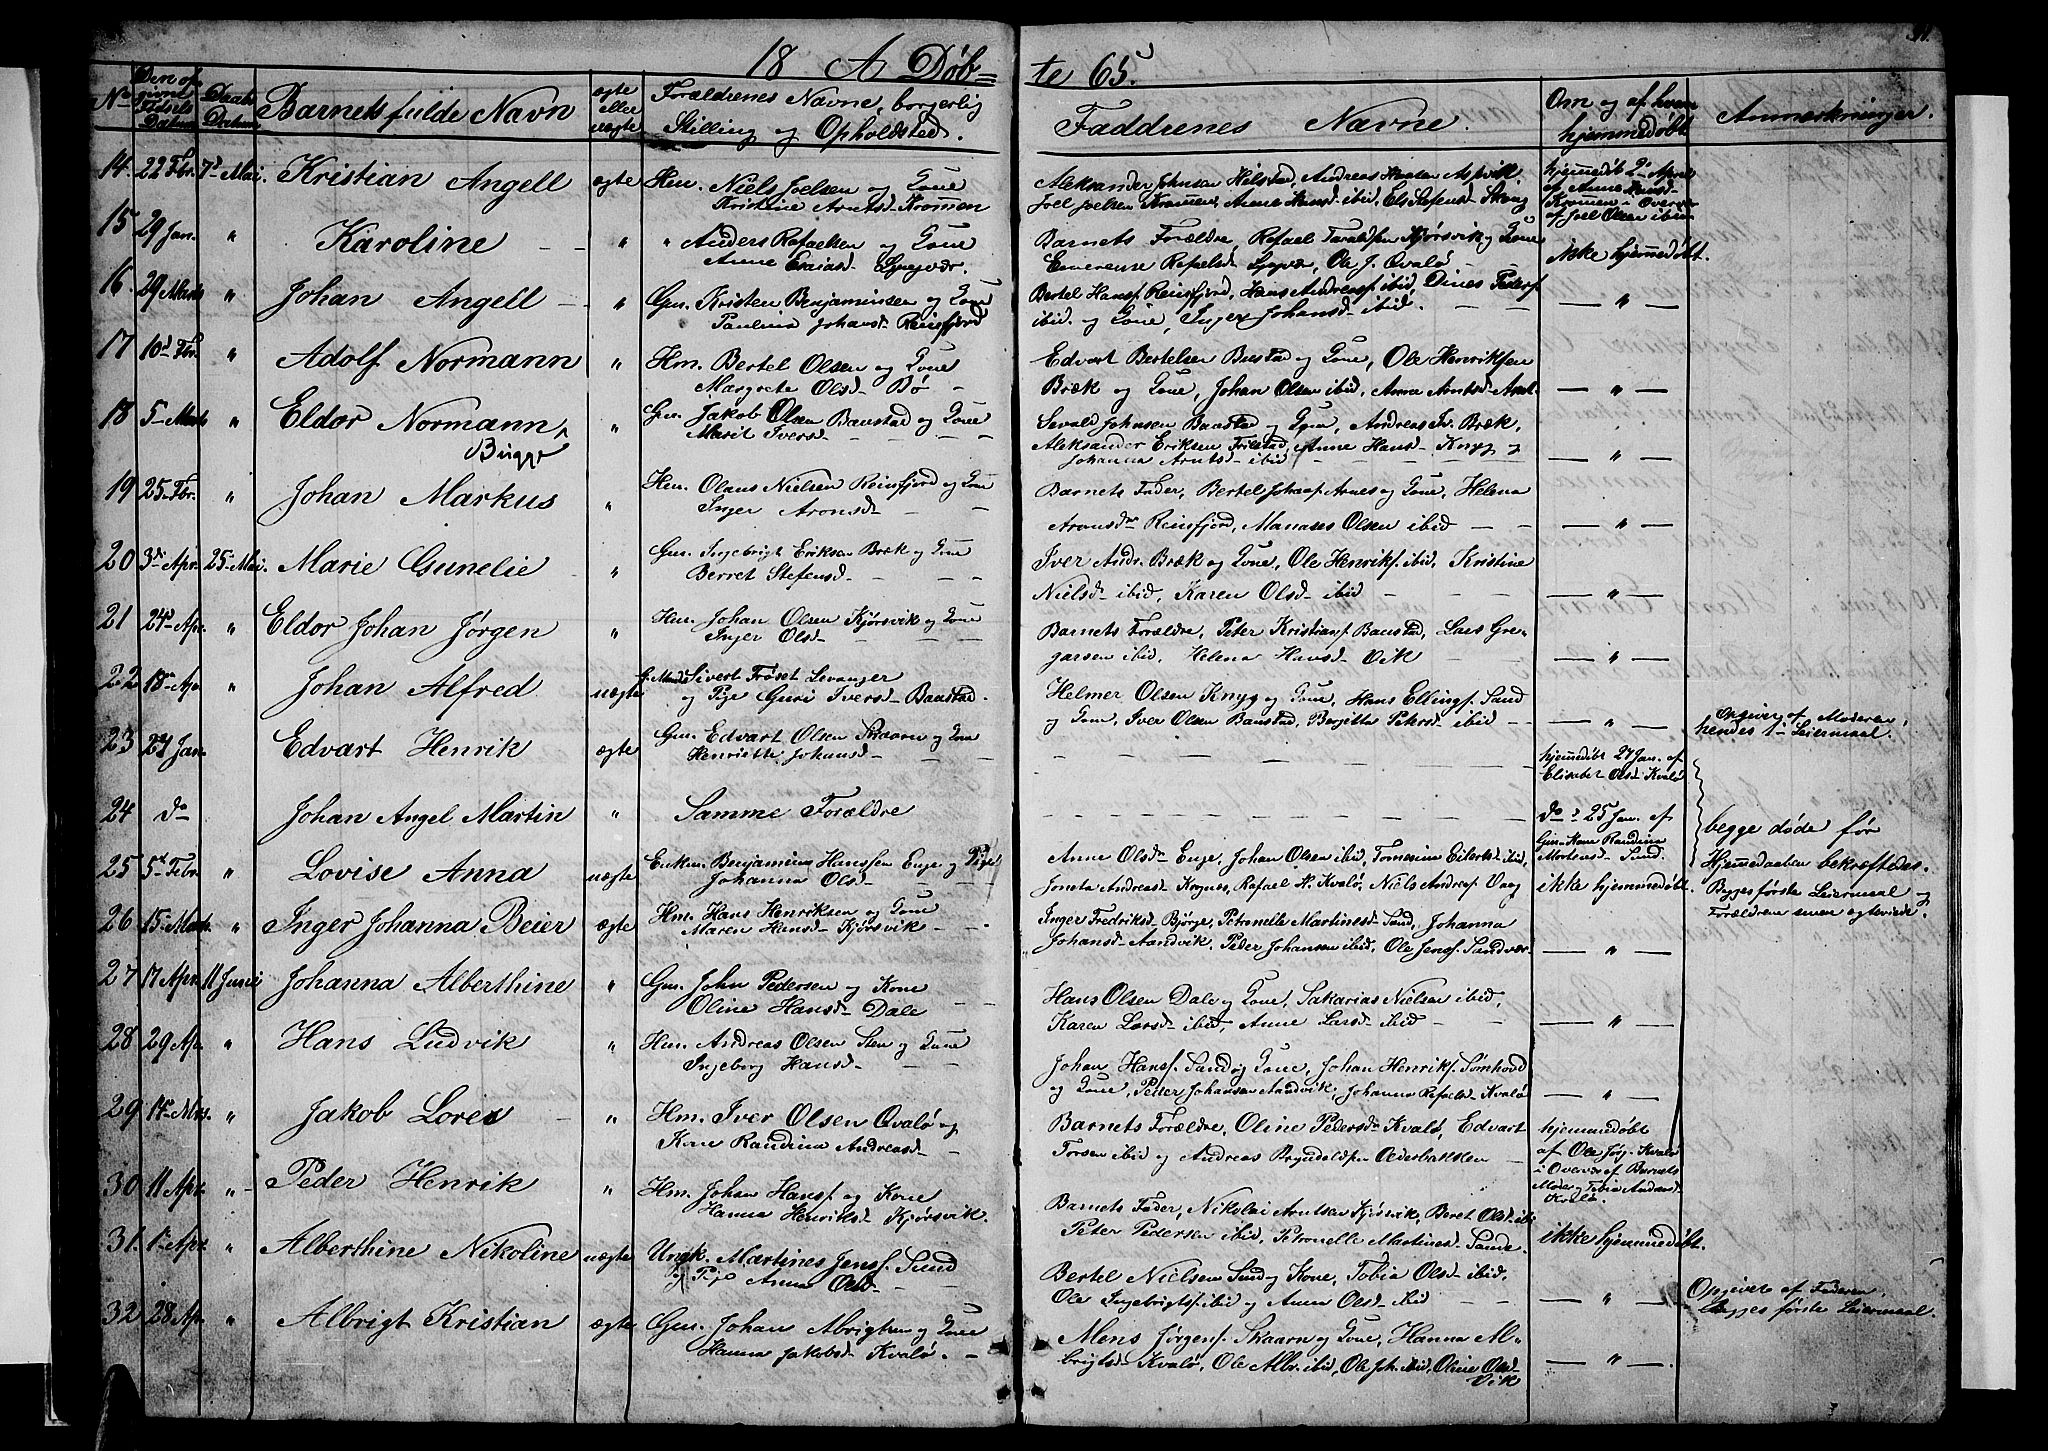 18 A Døb=
te 65.
No
Den op
givne
Fødsels
Datum
Daabs
Datum
Barnets fulde Navn
ægte
eller
uægte
Forældrenes Navne, borgerlig
Stilling og Opholdsted.
Faddrenes Navne.
Om og af hvem
hjemmedøbt
Anmærkninger.
14. 22 Fbr. 7d Mai. Kristian Angell ægte Hm. Niels Joelsen og Kone
Kristine Arntsd- Kromen
Aleksander Johnsen Hilstad, Andreas Aspvik,
Joel Joelsen Kromen, Anne Hansd- ibid, Els Stefensd-
hjemmedøbt 2 April
af Anne Hansd-
Kromen i Overvær
af Joel Olsen ibid
15 29 Jan. " Karoline - " " Anders Rafaelsen og Kone
Anne Esaiasd-
Barnets Forældre, Rafael Kjørsvik og Kone
Rafaelsd- Ole J. Qvalø
ikke hjemmedøbt.
16. 29 Marts " Johan Angell - " Gm. Kristen Benjaminsen og Kone
Paulina Johansd- Reinsfjord
Bertel Hansf. Reinsfjord, Hans Andreasf. ibid, Dines Pedersf
ibid. og Kone, Inger Johansd- ibid. - "  -
17 10d Fbr. " Adolf Normann " Hm. Bertel Olsen og Kone
Margrete Olsd- Bø -
Edvart Bertelsen Bustad og Kone, Ole Henriksen
Bræk og Kone, Johan Olsen ibid, Anne Arntsd- - " -
18 5- Marts " Eldor Normann
Bugge " Gm. Jakob Olsen Baustad og Kone
Marit Iversd- - - -
Sevald Johnsen Baustad og Kone, Andreas Iv. Bræk,
Aleksander Eriksen Anne Hansd- Knyg og
Johanna Arntsd- ibid - - - " -
19 25- Fbr. " Johan Markus " Hm. Olaus Nielsen Reinsfjord og Kone
Inger Aronsd- - -
Barnets Fader, Bertel Arnes og Kone, Helena
Aronsdr Reinsfjord, Manases Olsen ibid - - - " -
20 3d Apr. 25- Mai. Marie Gunelie - " Gm. Ingebrigt Eriksen Bræk og Kone
Berret Stefensd- - - -
Iver Andr. Bræk og Kone, Ole Henriksf. ibid, Kristine
Nielsd- ibid, Karen Olsd- ibid - - - " -
21 24- Apr. " Eldor Johan Jørgen " Hm. Johan Olsen Kjørsvik og Kone
Inger Olsd- - - -
Barnets Forældre, Peter Kristiansf. Baustad, Lars Gre-
garsen ibid, Helena Hansd- Vik - - " -
22 18- Ap. " Johan Alfred uægte Sivert Frøset Levanger
og Pige Guri Iversd- Baustad.
Helmer Olsen Knyg og Kone, Hans Ellingsf. Sand
og Kone, Iver Olsen Baustad, Bergitte Petersd- ibid - - " -
Opgiver af Moderen,
hendes 1- Leiermaal.
23 24 Jan. Edvart Henrik ægte Gm. Edvart Olsen Skaarn og Kone
Henriette Johansd- - -
- - - - - -
hjemmedøbt 24 Jan. af
Elisabet Olsd- Kvalø
24 do Johan Angel Martin " Samme Forældre
- - - - - -
do 25 Jan. af
Gm. Kone Randina
Mortensd- Sund.
begge døde før
Hjemmedaaben bekræftedes.
25 5t Febr. " Lovise Anna uægte Enkem. Benjamin Hanssen Enge og Pige
Johanna Olsd- -
Anne Olsdr Enge, Johan Olsen ibid, Tomesine Eilerksd- ibid,
Andreasd- Rafael H. Kvalø, Niels Andreasf
ikke hjemmedøbt.
Begges første Leiermaal og
Forældrene ægteviede.
26 15- Marts. " Inger Johanna Beier ægte Hm. Hans Henriksen og Kone
Maren Hansd- Kjørsvik - -
Inger Fredriksd- Bjørge, Petronelle Martinesd- Sund, Johanna
Johansd- Aandvik, Peder Johansen ibid, Ole Jensf. Sundvær - " -
27 17 Apr. 11 Junii Johanna Alberthine " Gm. John Pedersen og Kone
Oline Hansd- Dale
Hans Olsen Dale og Kone, Sakarias Nielsen ibid,
Karen Larsd- ibid, Anne Larsd- ibid - - " -
28 29 Ap. " Hans Ludvik " Hm. Andreas Olsen Sten og Kone
Ingeborg Hansd- - -
Johan Hansf. Sund og Kone, Johan Henriksf. Somhovd
og Kone, Peder Johansen Aandvik, Johanna Rafaelsd- Kvalø - " -
29 14- Mrs. " Jakob Loris - " Hm. Iver Olsen Qvalø og
Kone Randina Andreasd- -
Barnets Forældre, Oline Pedersdr Kvalø, Edvart
Torsen ibid og Andreas Oldenbakken -
hjemmedøbt
af Ole Jørg. Kvalø
i Overvær af Barnets
Moder og Tobia Andreasd-
Kvalø.
30 11 Apr. " - Peder Henrik " Hm. Johan Hansf. og Kone
Hanna Henriksd- Kjørsvik.
Barnets Fader, Nikolai Arntsen Kjørsvik, Beret Olsd- ibid
Peter Pedersen ibid, Petronelle Martinesd- Sunde.
ikke hjemmedøbt.
31. 1- Apr. " Alberthine Nikoline uægte Ungk. Martines Jensf. Sund
og Pige Anna Olsd- -
Bertel Nielsen Sund og Kone, Tobia Olsd- ibid,
Ole Ingebrigtsf. ibid og Anna Olsd- ibid - - " -
Opgivet af Faderen,
Begges første Leiermaal.
32 28 Ap. " Albrigt Kristian ægte Gm. Johan Albrigtsen og Kone
Hanna Jakobsd- Kvalø. -
Mens Jørgensf. Skaarn og Kone, Hanna Al-
brigtsd- Kvalø, Ole Albr. ibid, Ole Joh. ibid, Oline Olsd-
Vik - " -